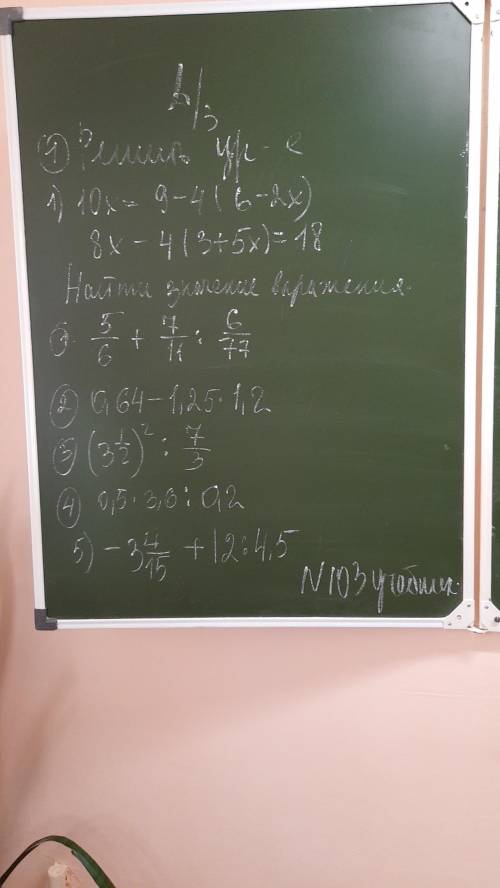 Д/з
① Решить ур-е
1) 10x = 9-4(6-2x)
8x-4(3+5x)=18
Найти значение выражения.
5/6 + 7/11 : 6/77
② 0,64-1,25·1,2
③ (3 1/2)² : 7/3
④ 0,5·3,6:0,2
5) -3 4/15 + 12:4,5
N103 учебник.